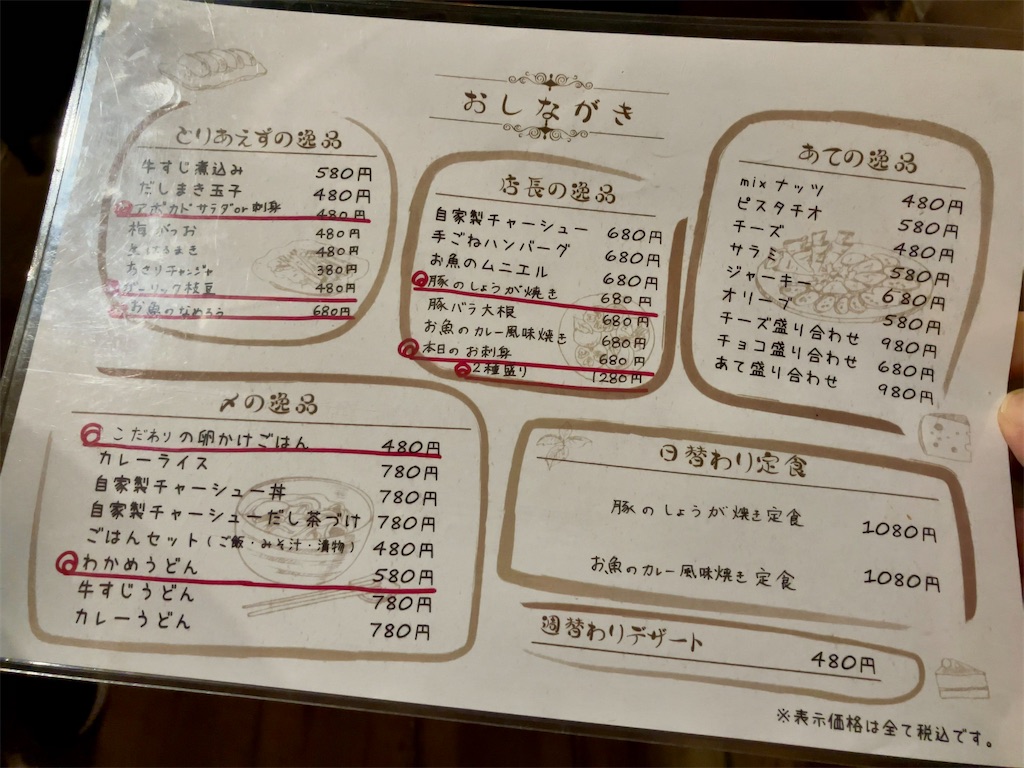 おしながき
とりあえずの逸品
牛すじ煮込み 580円
だしまき玉子 480円
アボカドサラダor刺身 480円
梅がつお 480円
生はるまき 480円
あさりチャンジャ 380円
ガーリック枝豆 480円
お魚のなめろう 680円
店長の逸品
自家製チャーシュー 680円
手ごねハンバーグ 680円
お魚のムニエル 680円
豚のしょうが焼き 680円
豚バラ大根 680円
お魚のカレー風味焼き 680円
本日のお刺身 680円
2種盛り 1280円
あての逸品
mixナッツ 480円
ピスタチオ 580円
チーズ 480円
サラミ 580円
ジャーキー 680円
オリーブ 580円
チーズ盛り合わせ 980円
チョコ盛り合わせ 680円
あて盛り合わせ 980円
〆の逸品
こだわりの卵かけごはん 480円
カレーライス 780円
自家製チャーシュー丼 780円
自家製チャーシューだし茶づけ 780円
ごはんセット(ご飯・みそ汁・漬物) 480円
わかめうどん 580円
牛すじうどん 780円
カレーうどん 780円
日替わり定食
豚のしょうが焼き定食 1080円
お魚のカレー風味焼き定食 1080円
週替わりデザート
480円
※表示価格は全て税込です。